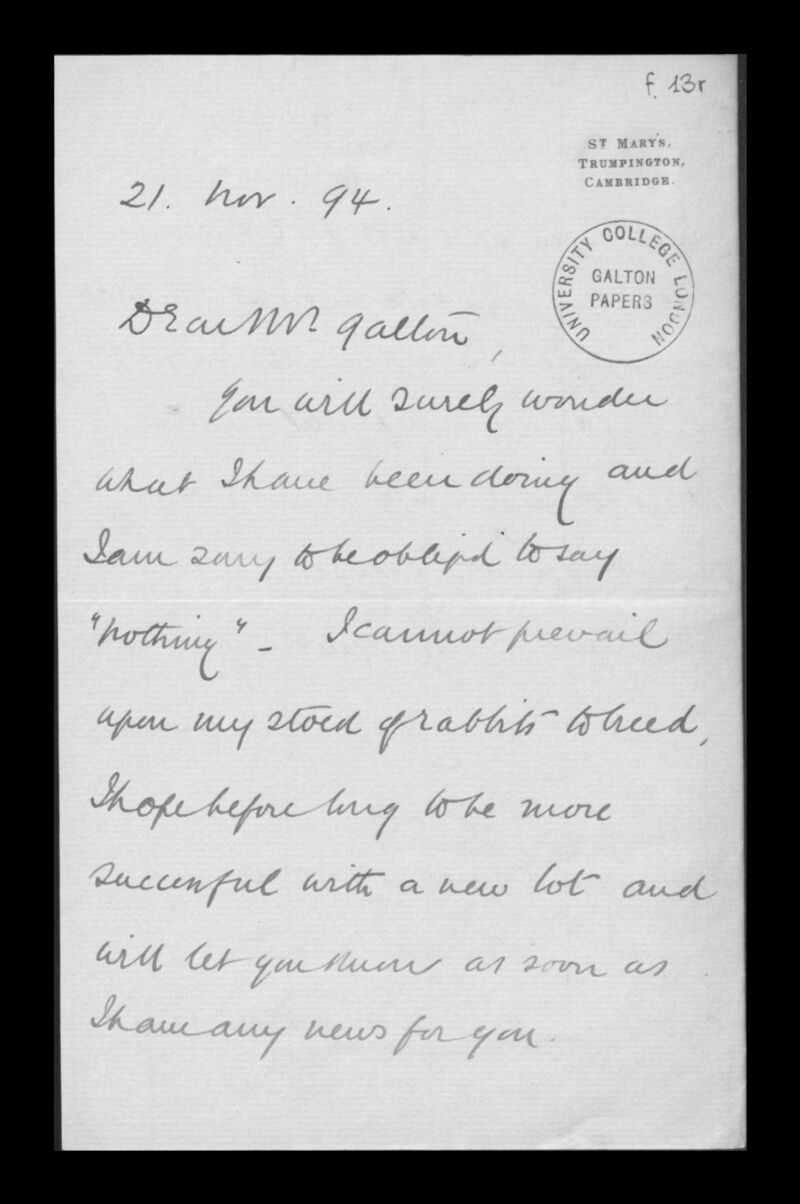 f. 13r
ST MARY'S,
TRUMPINGTON,
CAMBRIDGE.
21. Nov. 94.
UNIVERSITY COLLEGE LONDON
GALTON
PAPERS
Dear Mr Galton,
You will surely wonder
what I have been doing and
I am sorry to be oblig'd to say
"nothing" - I cannot prevail
upon my stock of rabbits to breed,
I hope before long to be more
successful with a new lot and
will let you know as soon as
I have any news for you.